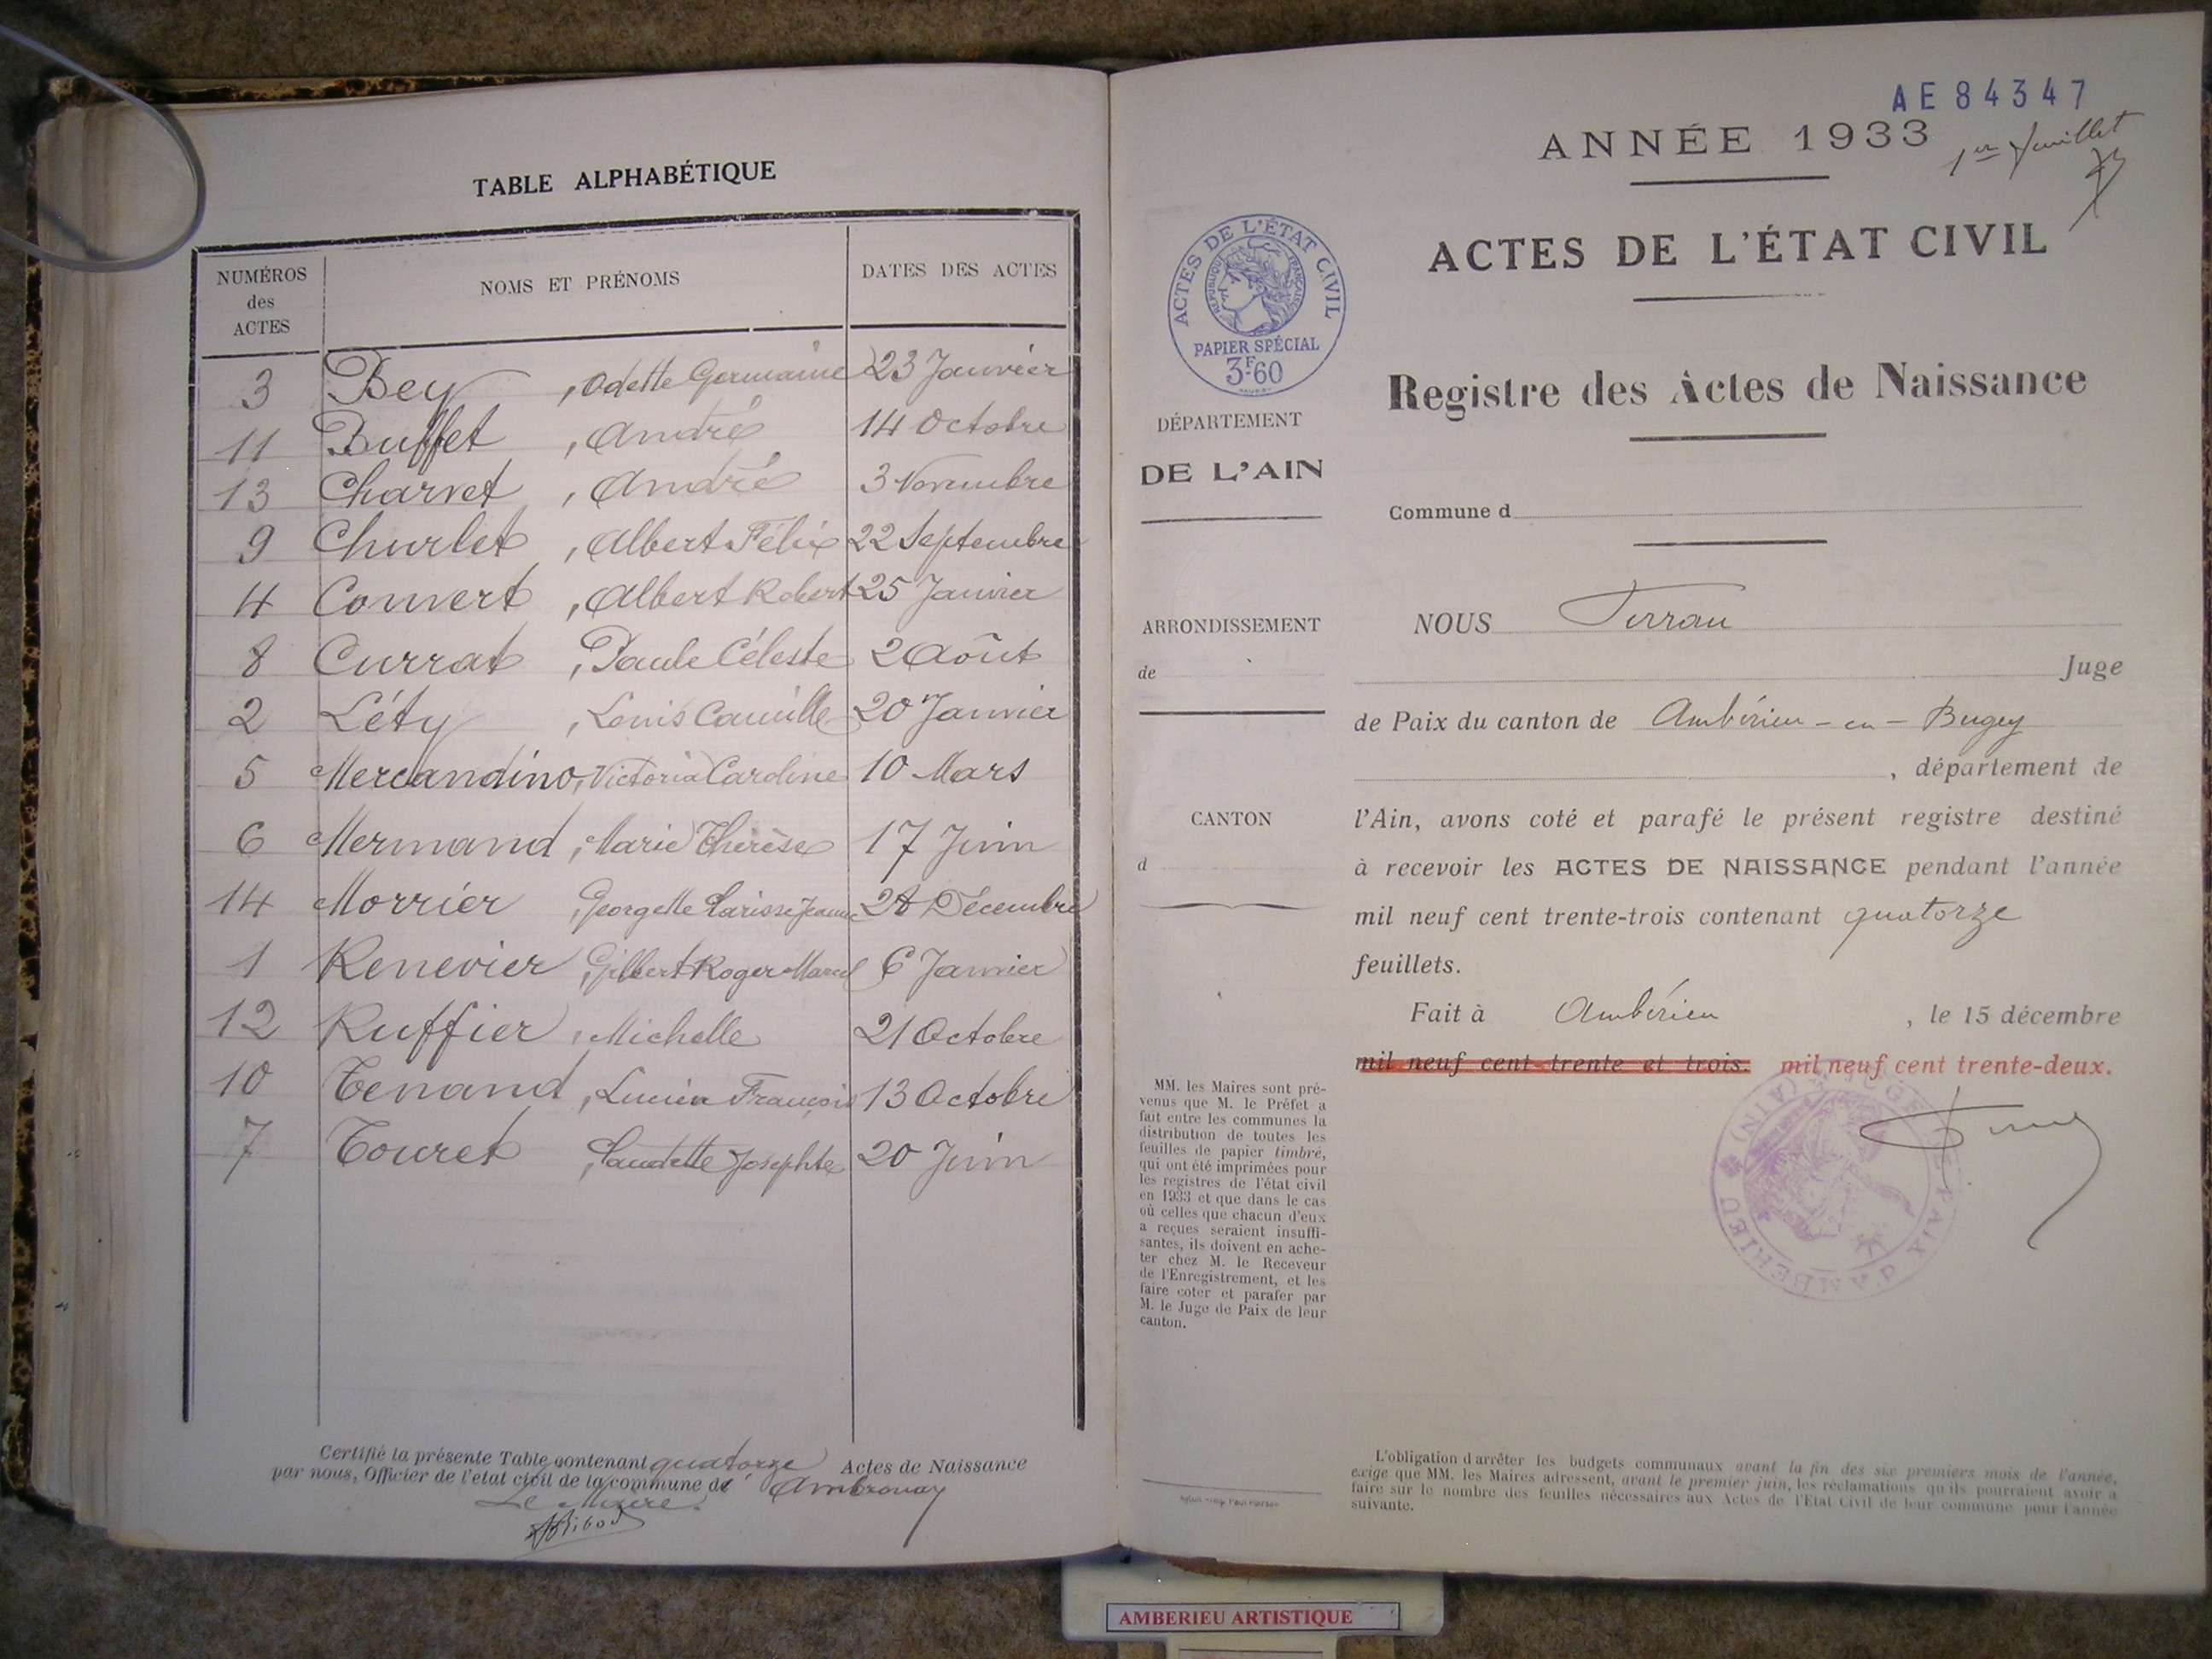 TABLE ALPHABÉTIQUE
NUMÉROS
des
ACTES
NOMS ET PRÉNOMS
DATES DES ACTES
3 Bey, Odette Germaine 23 Janvier
11 Buffet, André 14 Octobre
13 Charvet, André 3 Novembre
9 Churlet, Albert Félix 22 Septembre
4 Convert, Albert Robert 25 Janvier
8 Currat, Paule Céleste 2 Août
2 Léty, Louis Camille 20 Janvier
5 Mercandino, Victoria Caroline 10 Mars
6 Mermand, Marie Thérèse 17 Juin
14 Morrier, Georgette Jeanne Décembre
1 Renevier, Gilbert Roger Marcel 6 Janvier
12 Ruffier, Michelle 21 Octobre
10 Tenand, Lucien François 13 Octobre
7 Touret, Claudette Josephte 20 Juin
Certifié la présente Table contenant quatorze Actes de Naissance
par nous, Officier de l'état civil de la commune de Ambronay
Le Maire
AE84347
ANNÉE 1933
1er feuillet
ACTES DE L'ÉTAT CIVIL
ACTES DE L'ÉTAT CIVIL
RÉPUBLIQUE FRANÇAISE
PAPIER SPÉCIAL
3F.60
Registre des Actes de Naissance
DÉPARTEMENT
DE L'AIN
Commune d
ARRONDISSEMENT
de
CANTON
d
NOUS
Juge
de Paix du canton de Ambérieu-en-Bugey
, département de
l'Ain, avons coté et parafé le présent registre destiné
à recevoir les ACTES DE NAISSANCE pendant l'année
mil neuf cent trente-trois contenant quatorze
feuillets.
Fait à Ambérieu, le 15 décembre
mil neuf cent trente et trois. mil neuf cent trente-deux.
MM. les Maires sont pré-
venus que M. le Préfet a
fait entre les communes la
distribution de toutes les
feuilles de papier timbré,
qui ont été imprimées pour
les registres de l'état civil
en 1933 et que dans le cas
où celles que chacun d'eux
a reçues seraient insuffi-
santes, ils doivent en ache-
ter chez M. le Receveur
de l'Enregistrement, et les
faire coter et parafer par
M. le Juge de Paix de leur
canton.
L'obligation d'arrêter les budgets communaux avant la fin des six premiers mois de l'année,
exige que MM. les Maires adressent, avant le premier juin, les réclamations qu'ils pourraient avoir à
faire sur le nombre des feuilles nécessaires aux Actes de l'Etat Civil de leur commune pour l'année
suivante.
AMBERIEU ARTISTIQUE